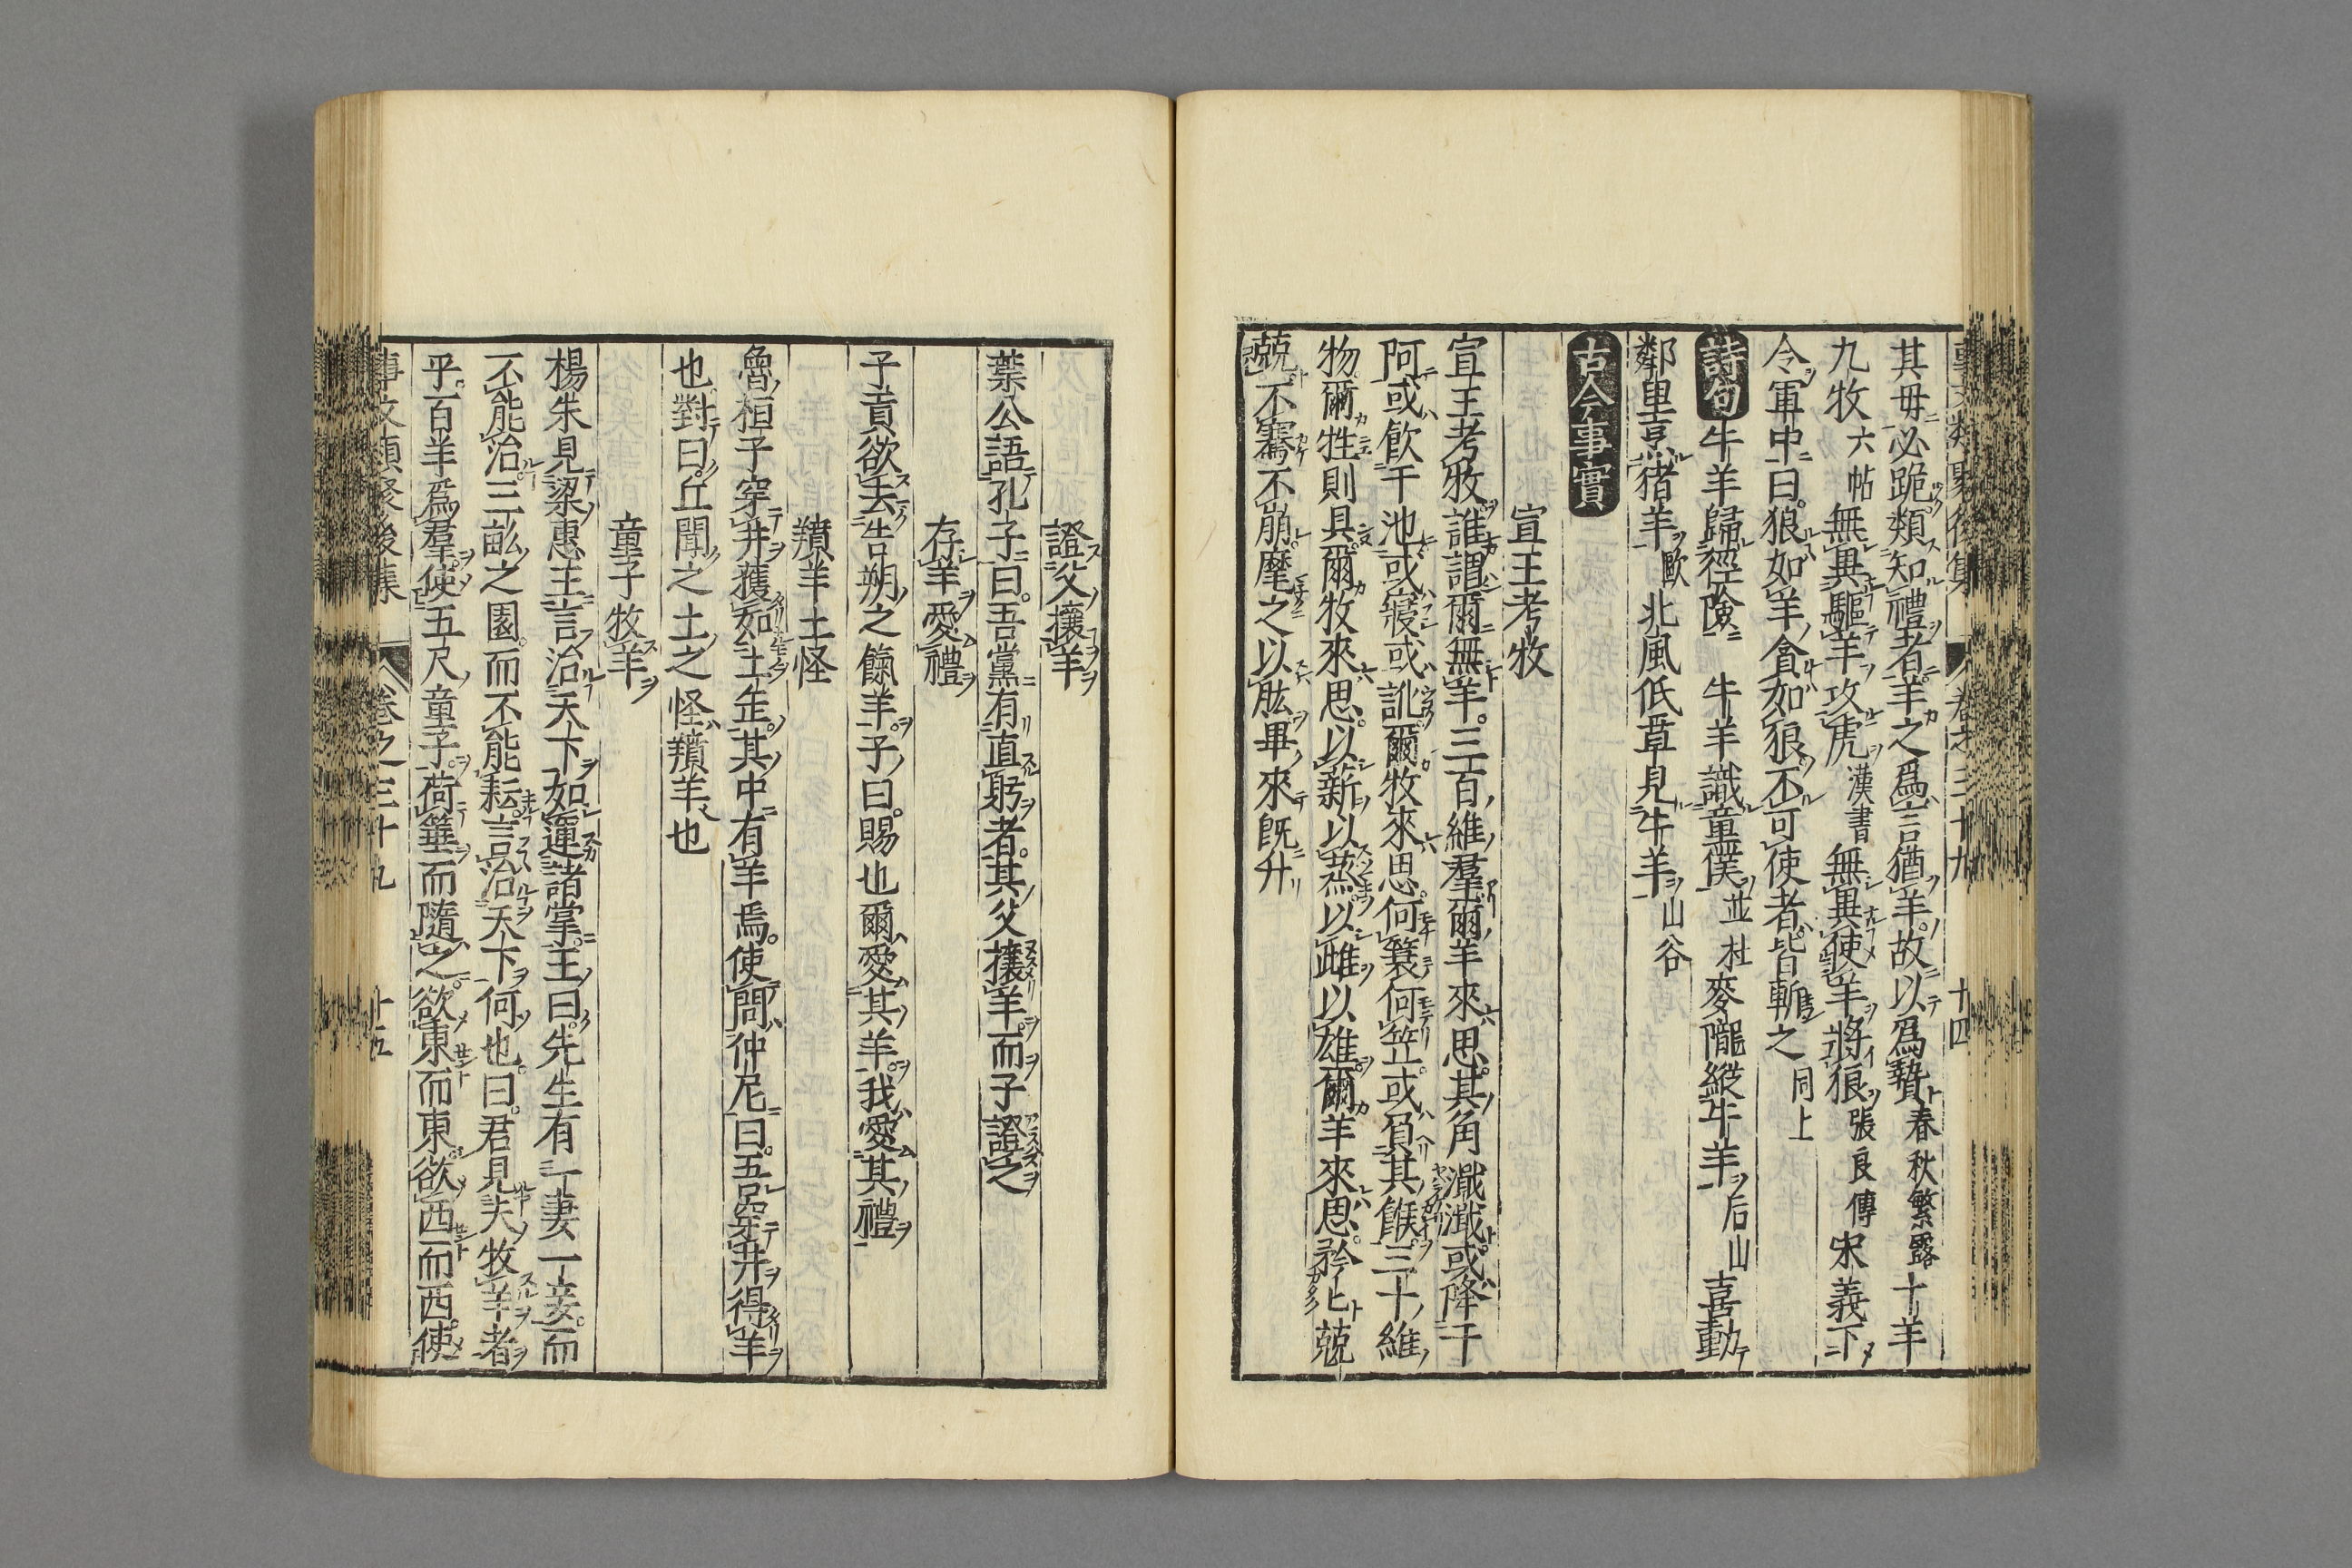 其母必跪類知禮者羊之爲言猶羊故以爲贄春秋繁露十羊
九牧六帖無異驅羊攻虎漢書無異使羊將狼張良傳宋義下
令軍中曰狼如羊貪如狼不可使者皆斬之同上
詩句牛羊歸徑險牛羊識童僕並杜麥隴縱牛羊后山喜動
鄰里烹猪羊歐北風低草見牛羊山谷
古今事實
宣王考牧
宣王考牧誰謂爾無羊三百維羣爾羊來思其角濈濈或降于
阿或飲于池或寢或訛爾牧來思何蓑何笠或負其餱三十維
物爾牲則具爾牧來思以薪以蒸以雌以雄爾羊來思矜矜兢
兢不騫不崩麾之以肱畢來既升
證父攘羊
葉公語孔子曰吾黨有直躬者其父攘羊而子證之
存羊愛禮
子貢欲去告朔之餼羊子曰賜也爾愛其羊我愛其禮
羵羊土怪
魯桓子穿井獲如土缶其中有羊焉使問仲尼曰吾穿井得羊
也對曰丘聞之土之怪羵羊也
童子牧羊
楊朱見梁惠王言治天下如運諸掌王曰先生有一妻一妾而
不能治三畝之園而不能耘言治天下何也曰君見夫牧羊者
乎百羊爲羣使五尺童子荷箠而隨之欲東而東欲西而西使
事文類聚後集 卷之三十九 十五